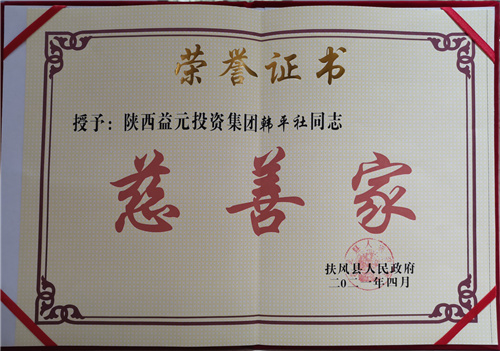 荣誉证书
授予：陕西益元投资集团韩平社同志
慈善家
扶风县人民政府
二〇二一年四月